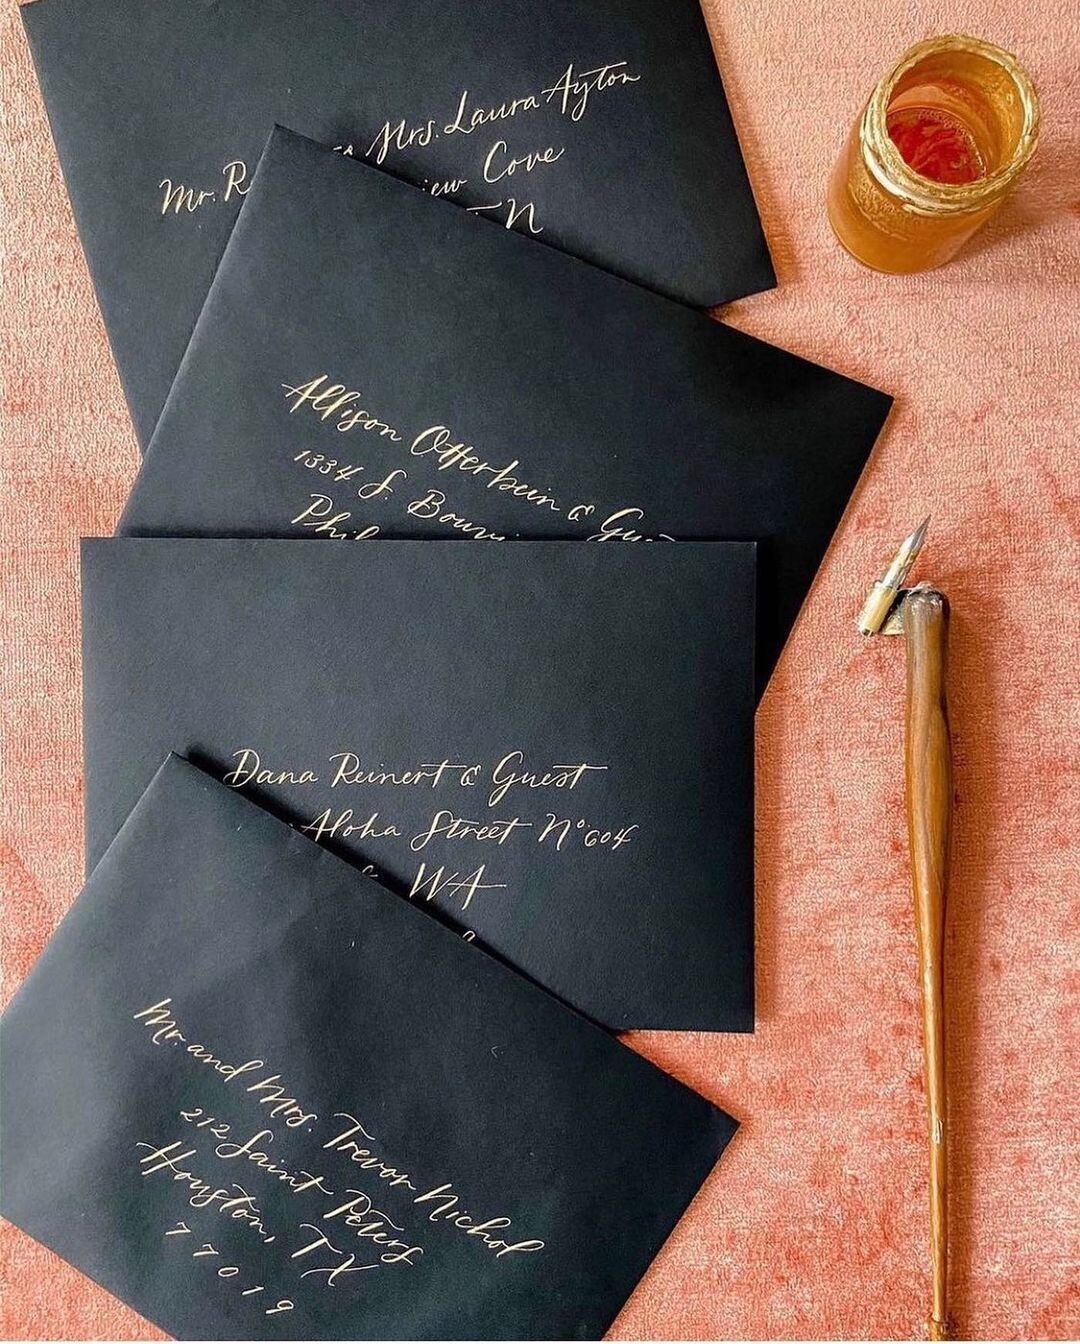 Mr. R & Mrs. Laura Ayton
iew Cove
TN
Allison Otterbein & Gu
1334 S. Bouv
Phil
Dana Reinert & Guest
Aloha Street Nº 604
WA
Mr. and Mrs. Trevor Nichol
212 Saint Peters
Houston, TX
77019